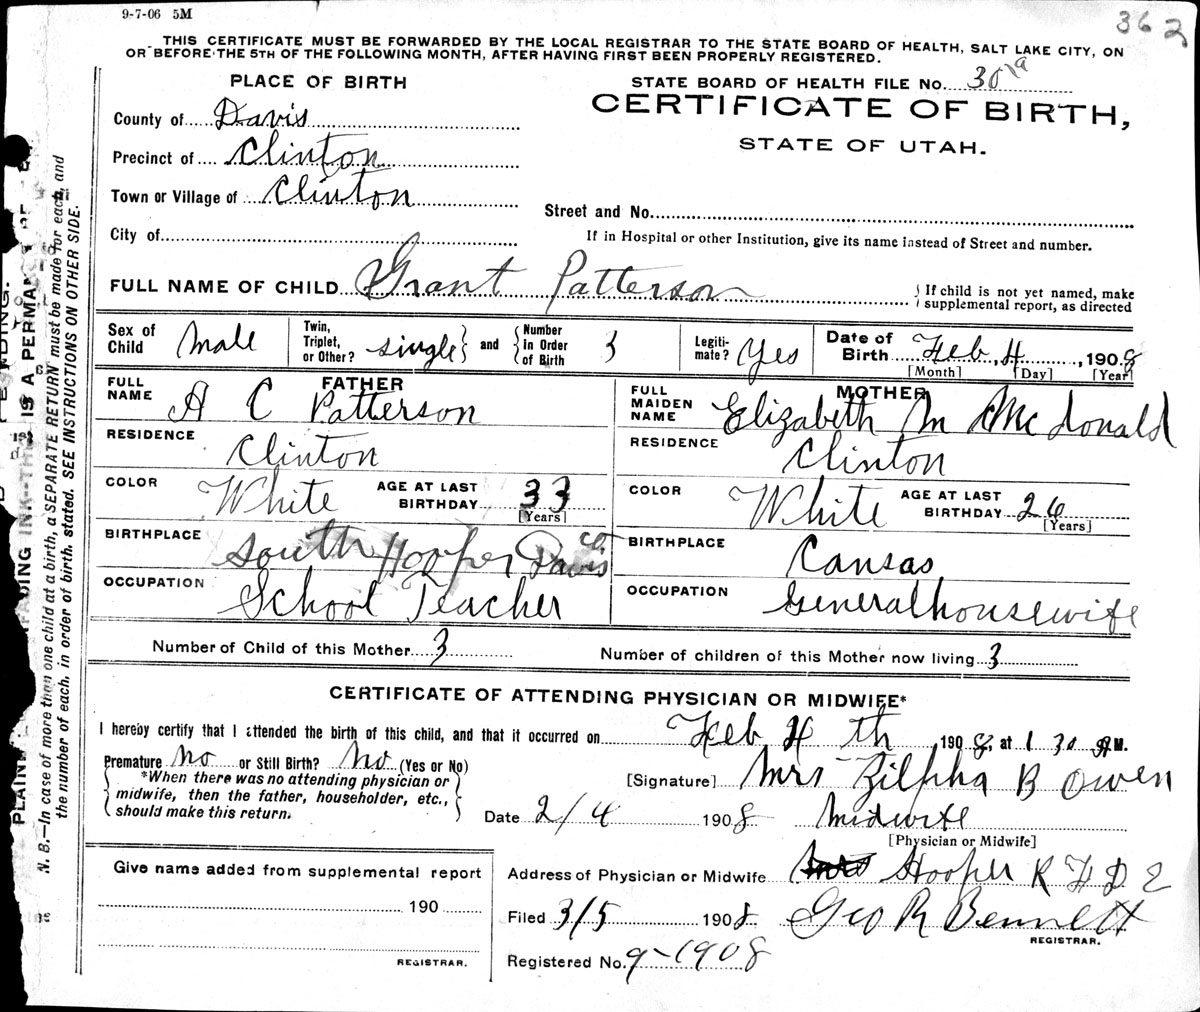 9-7-06 5M
362
THIS CERTIFICATE MUST BE FORWARDED BY THE LOCAL REGISTRAR TO THE STATE BOARD OF HEALTH, SALT LAKE CITY, ON
OR BEFORE THE 5TH OF THE FOLLOWING MONTH, AFTER HAVING FIRST BEEN PROPERLY REGISTERED.
PLACE OF BIRTH
STATE BOARD OF HEALTH FILE No. 30
CERTIFICATE OF BIRTH,
STATE OF UTAH.
County of Davis
Precinct of Clinton
Town or Village of Clinton
Street and No.
City of
If in Hospital or other Institution, give its name instead of Street and number.
FULL NAME OF CHILD Grant Patterson
If child is not yet named, make
supplemental report, as directed
Sex of Child Male
Twin, Triplet, or Other? single and Number in Order of Birth 3
Legitimate? Yes
Date of Birth Feb 4, 1908
[Month] [Day] [Year]
FATHER
FULL NAME A C Patterson
RESIDENCE Clinton
COLOR White AGE AT LAST BIRTHDAY 33
[Years]
BIRTHPLACE South Hooper Davis Co.
OCCUPATION School Teacher
MOTHER
FULL MAIDEN NAME Elizabeth M McDonald
RESIDENCE Clinton
COLOR White AGE AT LAST BIRTHDAY 26
[Years]
BIRTHPLACE Cansas
OCCUPATION General housewife
Number of Child of this Mother 3
Number of children of this Mother now living 3
CERTIFICATE OF ATTENDING PHYSICIAN OR MIDWIFE*
I hereby certify that I attended the birth of this child, and that it occurred on Feb 4 th, 1908, at 1 30 AM.
Premature No or Still Birth? No (Yes or No)
*When there was no attending physician or
midwife, then the father, householder, etc.,
should make this return.
[Signature] Mrs Zilpha B Owen
Date 2/4 1908 Midwife
[Physician or Midwife]
Give name added from supplemental report
190
REGISTRAR.
Address of Physician or Midwife Hooper R F D 2
Filed 3/5 1908 Geo R Bennett
REGISTRAR.
Registered No. 9-1908
N. B.—In case of more than one child at a birth, a SEPARATE RETURN must be made for each, and
the number of each, in order of birth, stated. SEE INSTRUCTIONS ON OTHER SIDE.